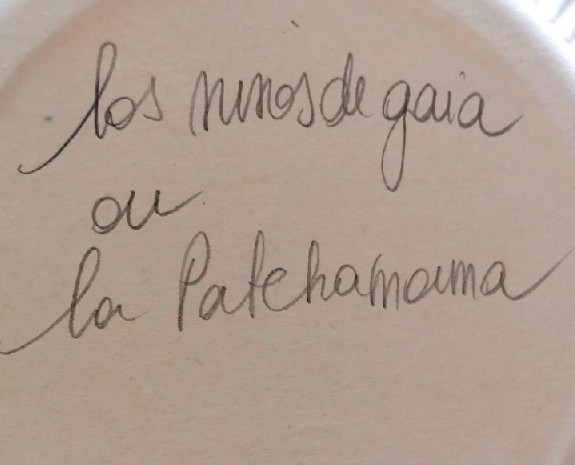 los ninos de gaia
ou
la Patchamama